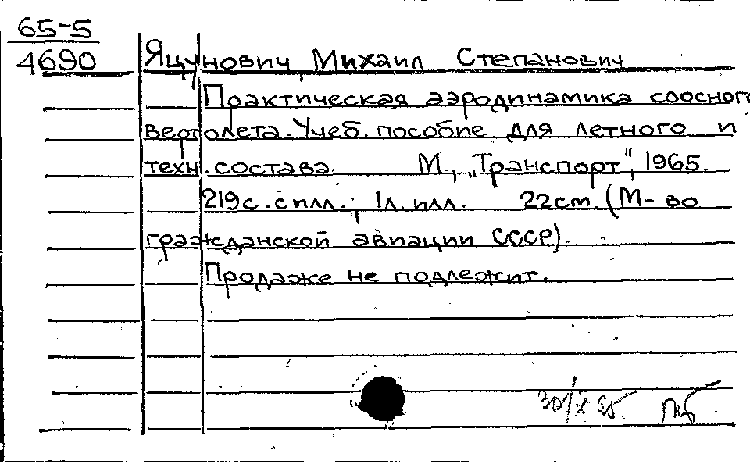 65-5
4690
Яцунович, Михаил Степанович
Практическая аэродинамика соосного
вертолета. Учеб. пособие для летного и
техн. состава. М., "Транспорт", 1965.
219 с. с илл.; 1 л. илл. 22 см. (М-во
гражданской авиации СССР).
Продаже не подлежит.